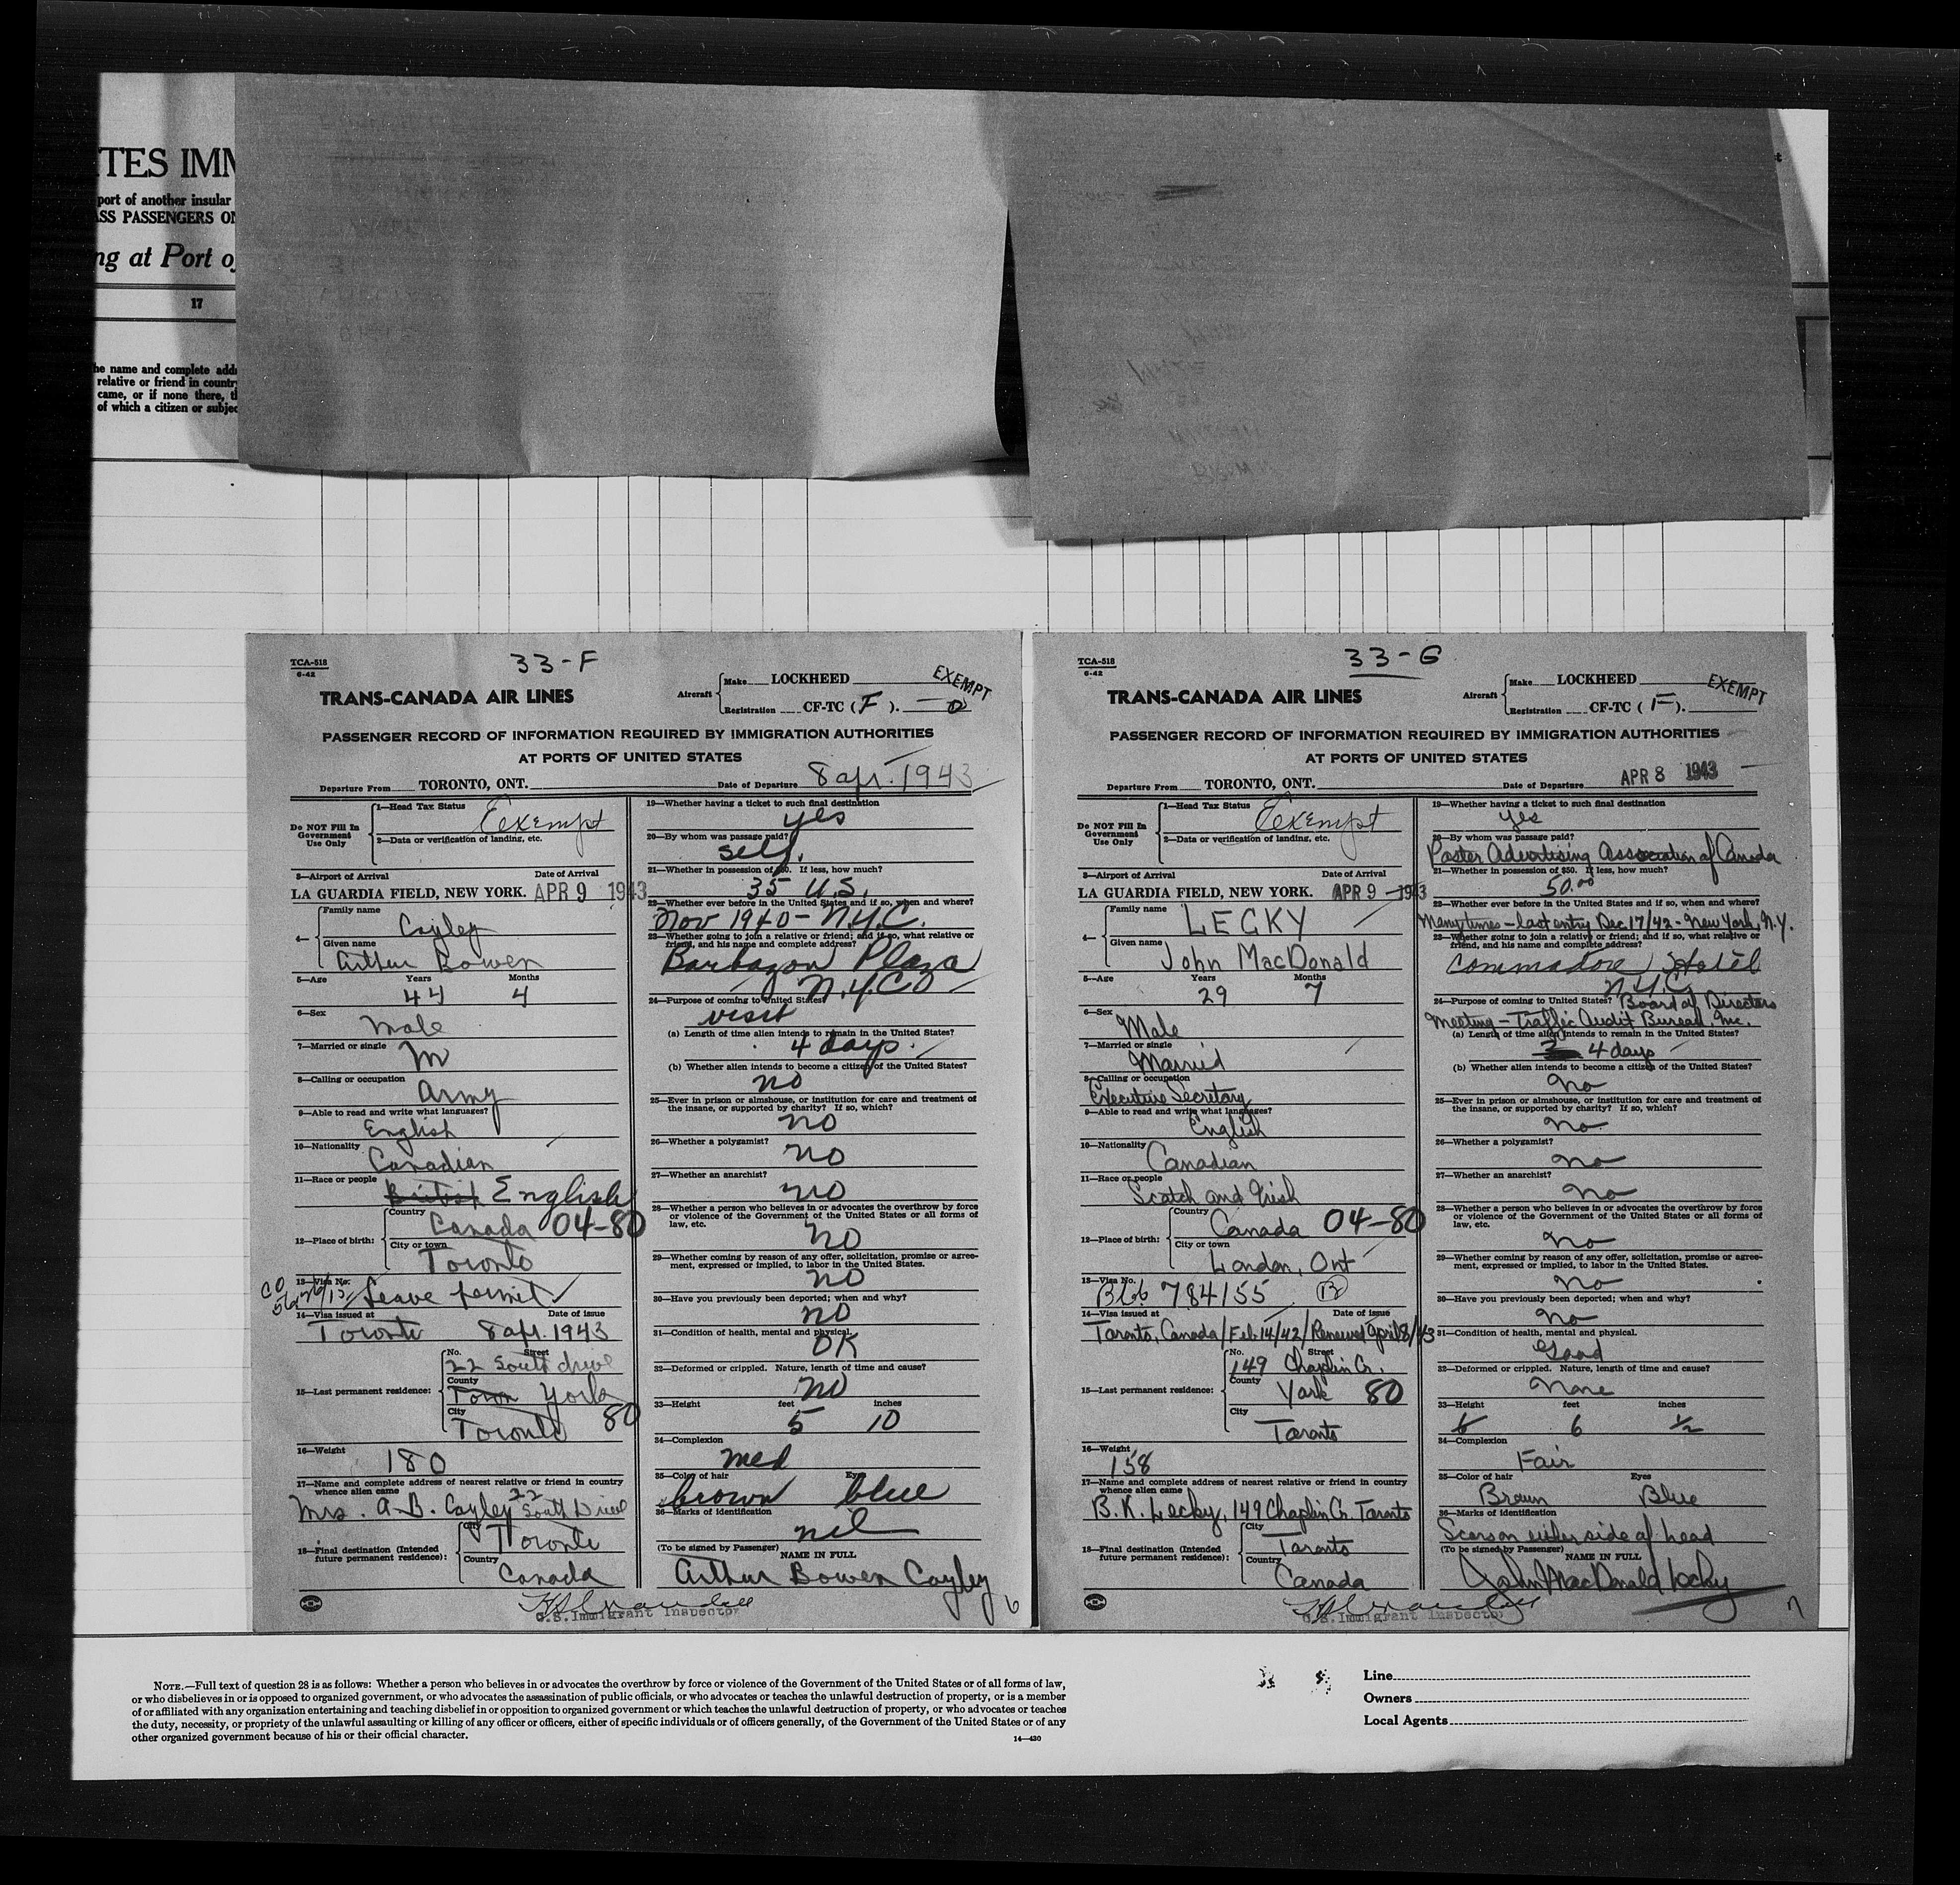 TES IMM
port of another insular
ASS PASSENGERS ON
ng at Port of
17
he name and complete add
relative or friend in countr
came, or if none there, t
of which a citizen or subjec
TCA-518
6-42
33-F
TRANS-CANADA AIR LINES
Aircraft
Make LOCKHEED
Registration CF-TC (F).
EXEMPT
PASSENGER RECORD OF INFORMATION REQUIRED BY IMMIGRATION AUTHORITIES
AT PORTS OF UNITED STATES
Departure From TORONTO, ONT. Date of Departure 8 apr. 1943
Do NOT Fill In Government Use Only
1—Head Tax Status Exempt
2—Data or verification of landing, etc.
3—Airport of Arrival Date of Arrival
LA GUARDIA FIELD, NEW YORK. APR 9 1943
4—
Family name Cayley
Given name Arthur Bowen
5—Age Years Months
44 4
6—Sex
Male
7—Married or single
M
8—Calling or occupation
Army
9—Able to read and write what languages?
English
10—Nationality
Canadian
11—Race or people
British English
12—Place of birth:
Country Canada 04-80
City or town
Toronto
13—Visa No.
Leave permit
14—Visa issued at Date of issue
Toronto 8 apr. 1943
15—Last permanent residence:
No. Street
22 South drive
County
Town York
City 80
Toronto
16—Weight
180
17—Name and complete address of nearest relative or friend in country
whence alien came
Mrs. A.B. Cayley 22 South Drive
18—Final destination (Intended
future permanent residence):
City
Toronto
Country
Canada
19—Whether having a ticket to such final destination
yes
20—By whom was passage paid?
self.
21—Whether in possession of $50. If less, how much?
35 U.S.
22—Whether ever before in the United States and if so, when and where?
Nov 1940 - N.Y.C.
23—Whether going to join a relative or friend; and if so, what relative or
friend, and his name and complete address?
Barbazon Plaza
N.Y.C.
24—Purpose of coming to United States?
visit
(a) Length of time alien intends to remain in the United States?
4 days.
(b) Whether alien intends to become a citizen of the United States?
no
25—Ever in prison or almshouse, or institution for care and treatment of
the insane, or supported by charity? If so, which?
no
26—Whether a polygamist?
no
27—Whether an anarchist?
no
28—Whether a person who believes in or advocates the overthrow by force
or violence of the Government of the United States or all forms of
law, etc.
no
29—Whether coming by reason of any offer, solicitation, promise or agree-
ment, expressed or implied, to labor in the United States.
no
30—Have you previously been deported; when and why?
no
31—Condition of health, mental and physical.
OK
32—Deformed or crippled. Nature, length of time and cause?
no
33—Height feet inches
5 10
34—Complexion
med
35—Color of hair Eyes
brown blue
36—Marks of identification
nil
(To be signed by Passenger) NAME IN FULL
Arthur Bowen Cayley
6
U.S. Immigrant Inspector
TCA-518
6-42
33-G
TRANS-CANADA AIR LINES
Aircraft
Make LOCKHEED
Registration CF-TC (F).
EXEMPT
PASSENGER RECORD OF INFORMATION REQUIRED BY IMMIGRATION AUTHORITIES
AT PORTS OF UNITED STATES
Departure From TORONTO, ONT. Date of Departure APR 8 1943
Do NOT Fill In Government Use Only
1—Head Tax Status Exempt
2—Data or verification of landing, etc.
3—Airport of Arrival Date of Arrival
LA GUARDIA FIELD, NEW YORK. APR 9 1943
4—
Family name LECKY
Given name John MacDonald
5—Age Years Months
29 7
6—Sex
Male
7—Married or single
Married
8—Calling or occupation
Executive Secretary
9—Able to read and write what languages?
English
10—Nationality
Canadian
11—Race or people
Scotch and Irish
12—Place of birth:
Country Canada 04-80
City or town
London, Ont
13—Visa No.
784155
14—Visa issued at Date of issue
Toronto, Canada/Feb 14/42/Renewed April 8/43
15—Last permanent residence:
No. Street
149 Chaplin Cr.
County
York 80
City
Toronto
16—Weight
158
17—Name and complete address of nearest relative or friend in country
whence alien came
B. K. Lecky, 149 Chaplin Cr. Toronto
18—Final destination (Intended
future permanent residence):
City
Toronto
Country
Canada
19—Whether having a ticket to such final destination
yes
20—By whom was passage paid?
Poster Advertising Association of Canada
21—Whether in possession of $50. If less, how much?
50.00
22—Whether ever before in the United States and if so, when and where?
Many times - last entry Dec 17/42 - New York, N.Y.
23—Whether going to join a relative or friend; and if so, what relative or
friend, and his name and complete address?
Commodore Hotel
N.Y.C.
24—Purpose of coming to United States? Board of Directors
Meeting - Traffic Audit Bureau, Inc.
(a) Length of time alien intends to remain in the United States?
4 days
(b) Whether alien intends to become a citizen of the United States?
No
25—Ever in prison or almshouse, or institution for care and treatment of
the insane, or supported by charity? If so, which?
No.
26—Whether a polygamist?
No
27—Whether an anarchist?
No
28—Whether a person who believes in or advocates the overthrow by force
or violence of the Government of the United States or all forms of
law, etc.
No
29—Whether coming by reason of any offer, solicitation, promise or agree-
ment, expressed or implied, to labor in the United States.
No
30—Have you previously been deported; when and why?
No
31—Condition of health, mental and physical.
Good
32—Deformed or crippled. Nature, length of time and cause?
None
33—Height feet inches
6 6 1/2
34—Complexion
Fair
35—Color of hair Eyes
Brown Blue
36—Marks of identification
Scars on either side of head
(To be signed by Passenger) NAME IN FULL
John MacDonald Lecky
7
U.S. Immigrant Inspector
NOTE.—Full text of question 28 is as follows: Whether a person who believes in or advocates the overthrow by force or violence of the Government of the United States or of all forms of law,
or who disbelieves in or is opposed to organized government, or who advocates the assassination of public officials, or who advocates or teaches the unlawful destruction of property, or is a member
of or affiliated with any organization entertaining and teaching disbelief in or opposition to organized government or which teaches the unlawful destruction of property, or who advocates or teaches
the duty, necessity, or propriety of the unlawful assaulting or killing of any officer or officers, either of specific individuals or of officers generally, of the Government of the United States or of any
other organized government because of his or their official character.
14—430
Line
Owners
Local Agents